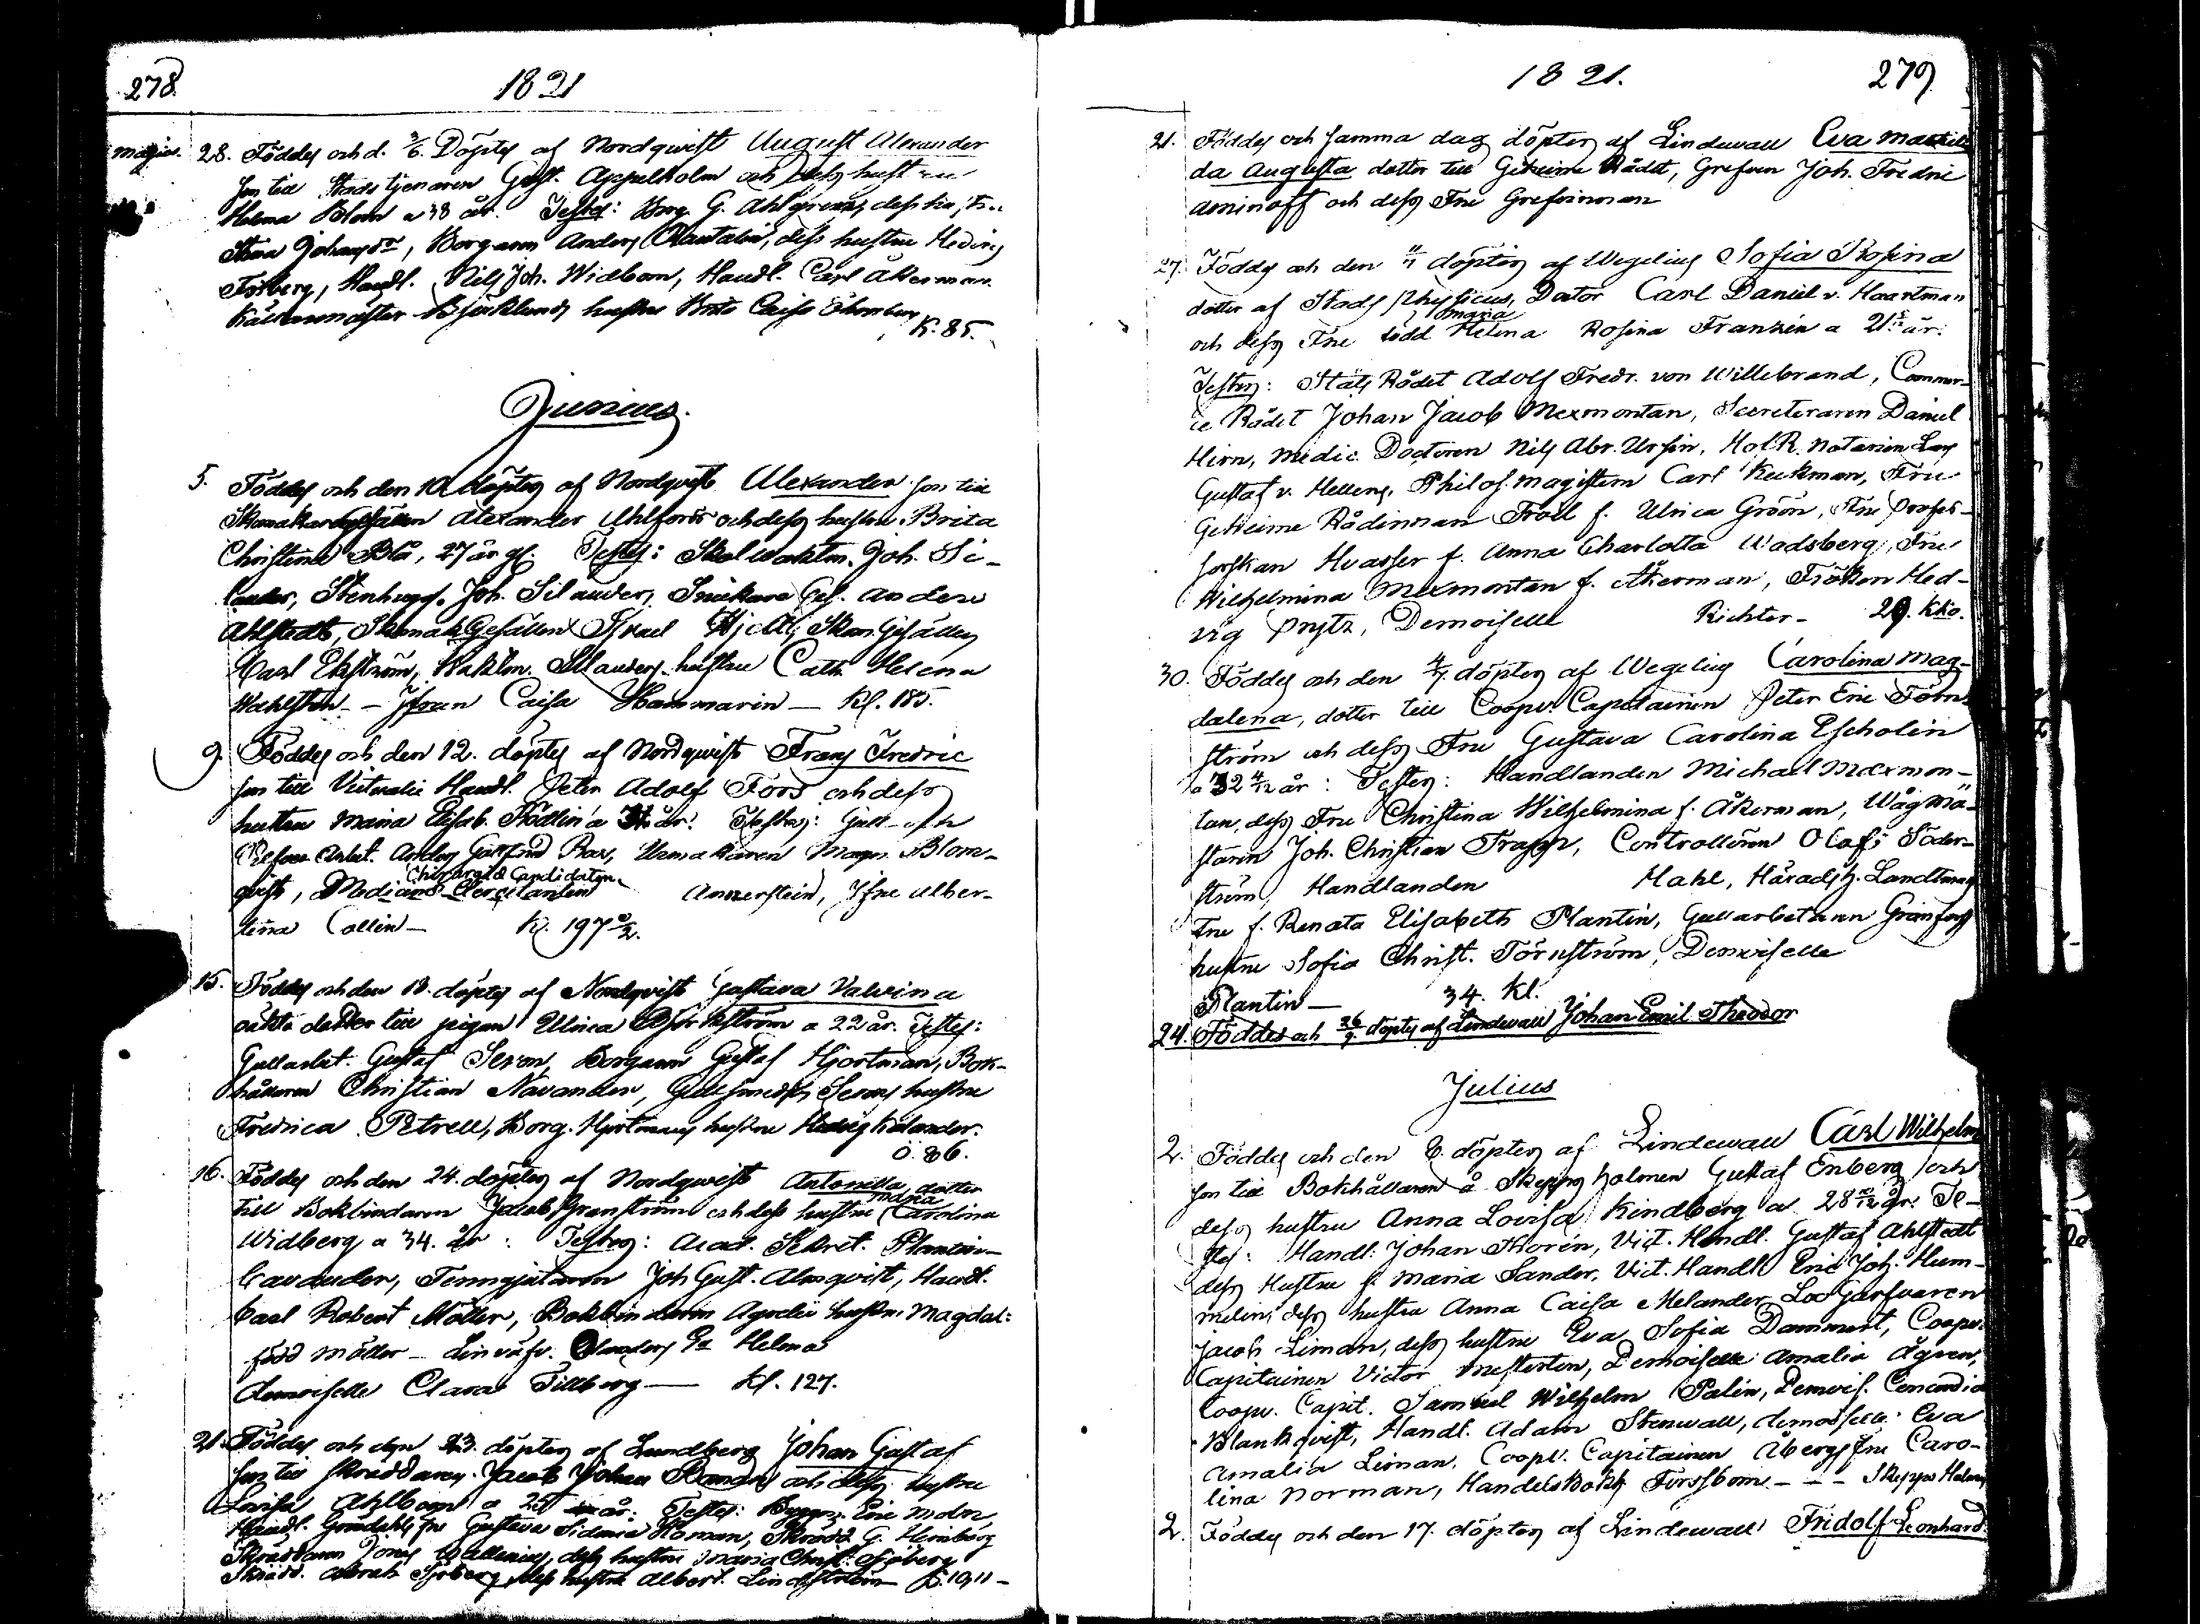 278.
1821
Majus. 28. Föddes och d. 3/6. Döptes af Nordqvist August Alexander
son till Stads tjenaren Gust. Appelholm och dess hustru
Helena Blom a 38 år. Testes: Borg. G. Ahlgren, dess hu,
Stina Johansdr, Borgaren Anders Rautalin, dess hustru Hedvig
Forsberg, Handl. Nils Joh. Widbom, Handl. Carl Åkerman
Källaremästar Björklunds hustru Brita Caisa Öhmberg
K. 85.
Junius.
5. Föddes och den 10 döptes af Nordqvist Alexander son till
Skomakaregesällen Alexander Uhlfors och dess hustru Brita
Christina Blå, 27 år gl. Testes: Skolwaktm. Joh. Si-
lander, Stenhugg. Joh. Silander, Snickare Ges. Anders
Ahlstedt, Skomak. Gesällen Israel Skom. Gesällen
Carl Ekström, Waktm. Silanders hustru Cath. Helena
Wahlsten — Jfrun Caisa Hammarin — Kl. 185.
9. Föddes och den 12. döptes af Nordqvist Frans Fredric
son till Victualie Handl. Peter Adolf Fors och dess
hustru Maria Elisab. Födlin a år. Testes: Gull- och
Silfver Arbet. Anders Gottfrid Rax, Urmakaren Magn. Blom-
qvist, Medicinae Chirurgiae Candidaten Amnerstein, Jfru Alber-
tina Collin — K. 197
15. Föddes och den 18. döptes af Nordqvist Gustava Valvina
oäkta dotter till pigan Ulrica Björkström a 22 år. Testes:
Gullarbet. Gustaf Seron, Borgaren Gustaf Hjortman, Bok-
hållaren Christian Navander, Gullsmeds Serons hustru
Fredrica Petrell, Borg. Hjortmans hustru Hedvig Kilander.
Ö. 86.
16. Föddes och den 24. döptes af Nordqvist Antonetta dotter
till Bokbindaren Jacob Granström och dess hustru Maria Carolina
Widberg a 34. år: Testes: Acad. Sekret. Plantin-
Cavander, Tenngjutaren Joh Gust. Almqvist, Handl.
Carl Robert Möller, Bokbindaren Agrelii hustru Magdal:
född Möller — Linväfv. Helena
demoiselle Clara Tillberg — Kl. 127.
21. Föddes och den 23. döptes af Lundberg Johan Gustaf
son till skräddaren Jacob Johan och dess hustru
Lovisa Ahlbom a 25 år: Testes: Byggm. Eric Molin,
Handl. Grändahls fru Gustava Sidonia Homan, Skrädd. G. Hemberg
Skräddaren Jonas Wallenius, dess hustru Maria Christ. Sjöberg
Skrädd. Abrah Sjöberg, dess hustru Albert. Lindström K. 10,11 -
1821.
279
21. Föddes och samma dag döptes af Lindewall Eva Mathil-
da Augusta dotter till Geheime Rådet, Grefven Joh. Fredric
Aminoff och dess Fru Grefvinnan
27. Föddes och den 11/7 döptes af Wegelius Sofia Rosina
dotter af Stads Physicus, Doctor Carl Daniel v. Haartman
och dess Fru född Maria Helena Rosina Franzén a 21 år.
Testes: Stats Rådet Adolf Fredr. von Willebrand, Commer-
ce Rådet Johan Jacob Mexmontan, Secreteraren Daniel
Hirn, Medic. Doctoren Nils Abr. Ursin, Hof R. Notarien Lars
Gustaf v. Hellens, Philos. Magistern Carl Keckman, Fru
Geheime Rådinnan Troil f. Ulrica Gröön, Fru Profes-
sorskan Hwasser f. Anna Charlotta Wadsberg, Fru
Wilhelmina Mexmontan f. Åkerman, Fröken Hed-
vig Prytz, Demoiselle Richter - 29. Klo.
30. Föddes och den 4/7 döptes af Wegelius Carolina Mag-
dalena, dotter till Coopv. Capitainen Peter Eric Törn-
ström och dess Fru Gustava Carolina Escholin
a 32 4/12 år: Testes: Handlanden Michael Mexmon-
tan, dess Fru Christina Wilhelmina f. Åkerman, Wåg Mä-
staren Joh. Christian Trapp, Controllören Olof Söder-
ström, Handlanden Hahl, Häradsh. Landtmans
Fru f. Renata Elisabeth Plantin, Gullarbetaren Granfors
hustru Sofia Christ. Törnström, Demoiselle
Plantin — 34. Kl.
24. Föddes och 26/9 döptes af Lindewall Johan Emil Theodor
Julius
2. Föddes och den 6. döptes af Lindewall Carl Wilhelm
son till Bokhållaren å Skeppsholmen Gustaf Enberg och
dess hustru Anna Lovisa Kindberg a 28 10/12 år. Te-
stes: Handl: Johan Thorén, Vict. Handl. Gustaf Ahlstedt
dess Hustru f. Maria Sander, Vict. Handl. Eric Joh. Hum-
melin, dess hustru Anna Caisa Melander, Logarfvaren
Jacob Liman, dess hustru Eva Sofia Dammert, Coopv.
Capitainen Victor Mestertin, Demoiselle Amalia Ågren,
Coopv. Capit. Samuel Wilhelm Palin, Demois. Concordia
Blankqvist, Handl. Adam Stenwall, demoiselle Eva
Amalia Liman, Coopv. Capitainen Åbergs fru Caro-
lina Norman, Handelsbokh. Forssbom - - - Skepps Holmen
2. Föddes och den 17. döptes af Lindewall Fridolf Leonhard